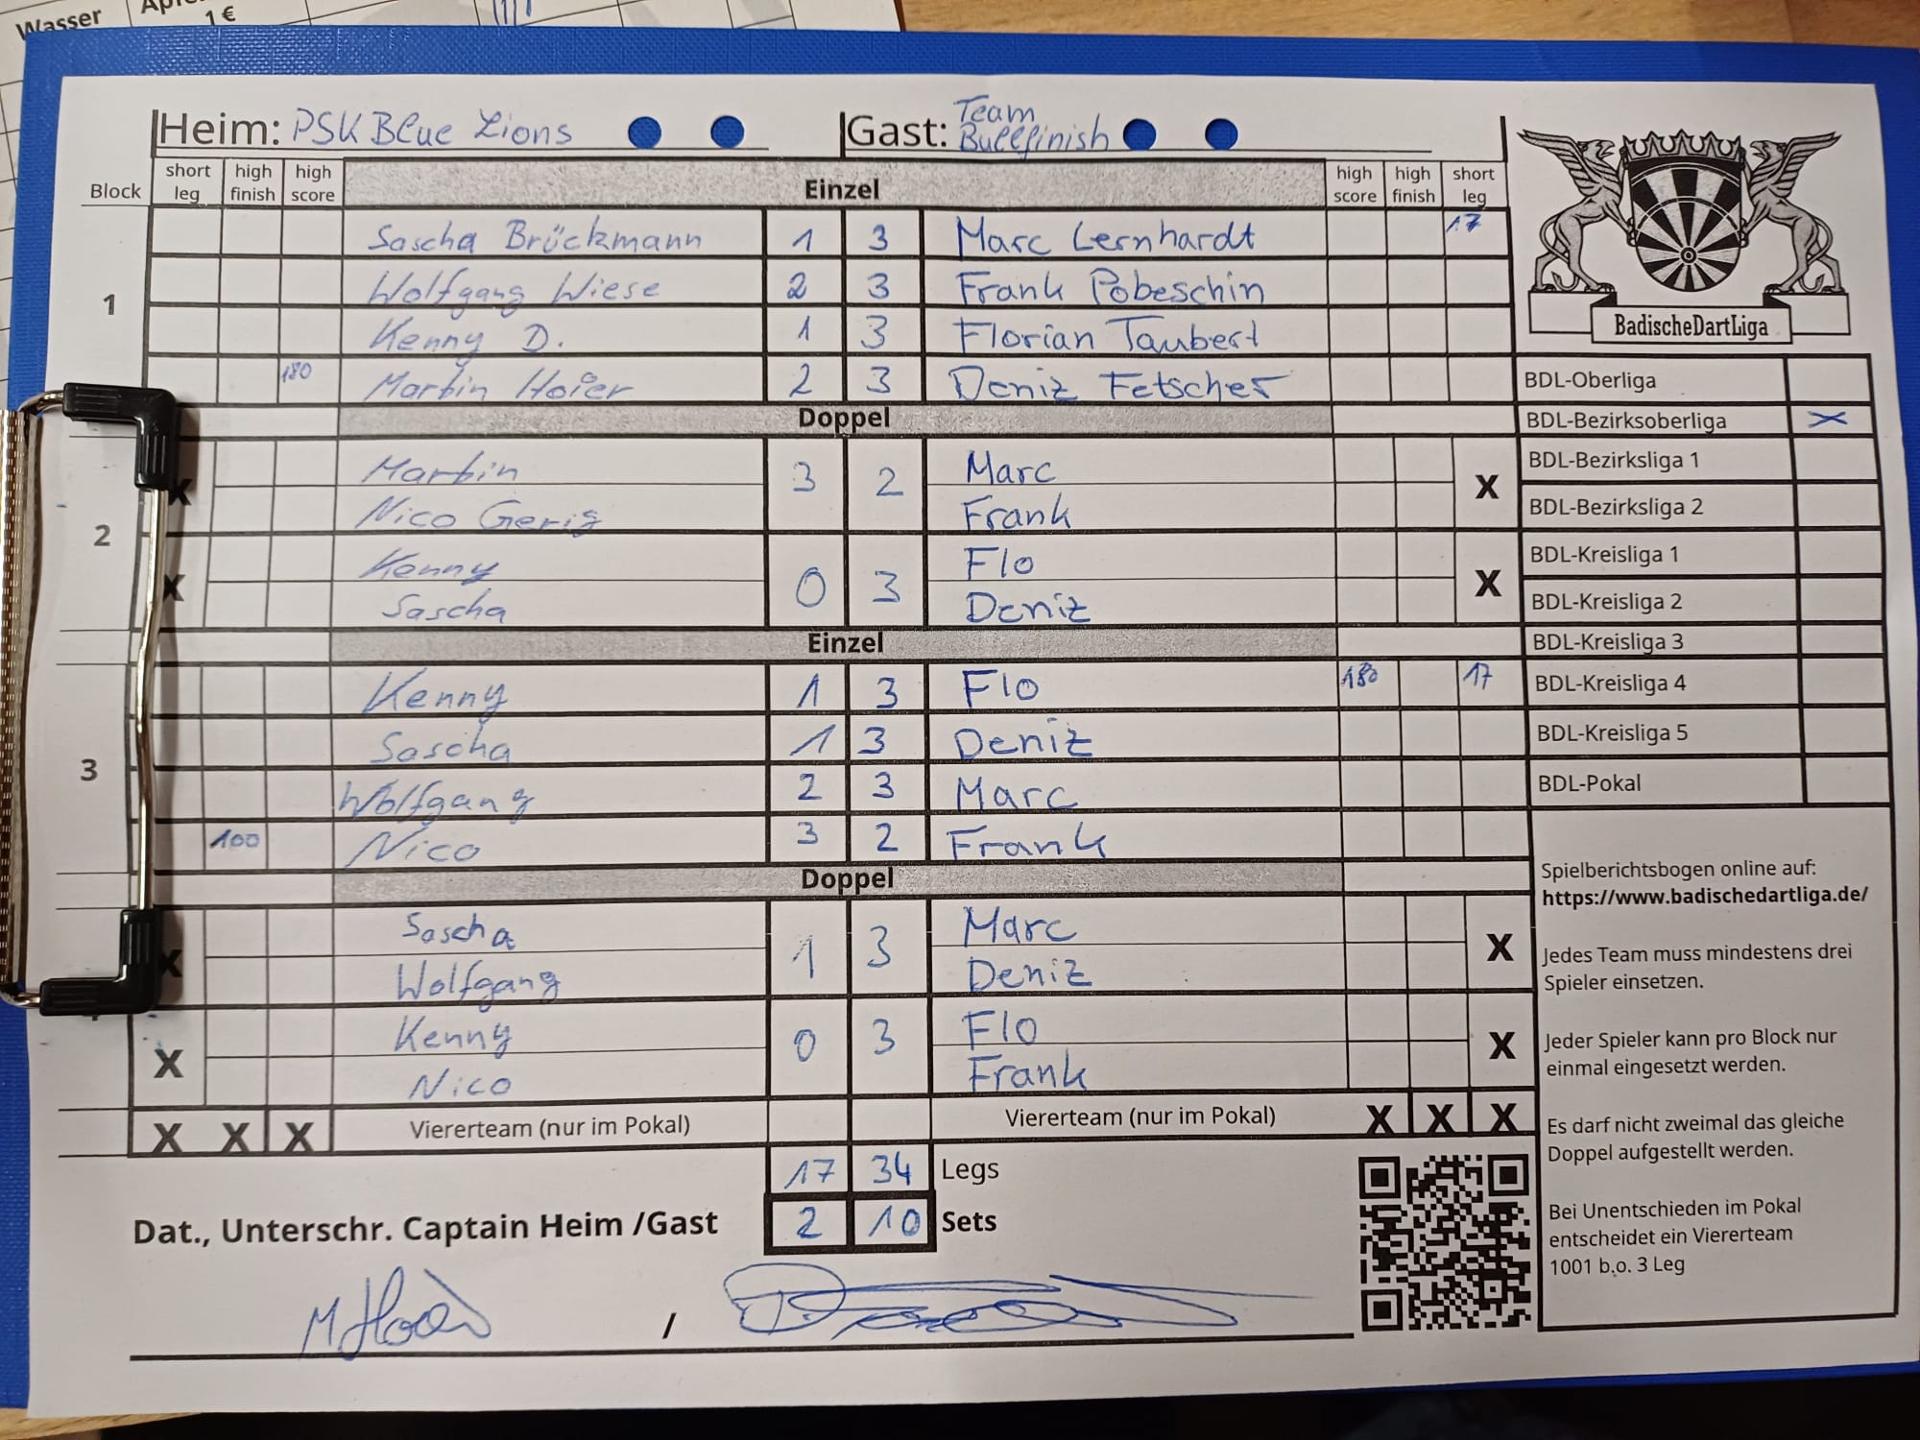 Wasser
1 €
Heim: PSK Blue Lions Gast: Team Bullfinish
Block short leg high finish high score Einzel high score high finish short leg
1
Sascha Brückmann 1 3 Marc Lernhardt 17
Wolfgang Wiese 2 3 Frank Pobeschin
Kenny D. 1 3 Florian Taubert
180 Martin Hoier 2 3 Deniz Fetscher
Doppel
2
X Martin 3 2 Marc X
Nico Gerig Frank
X Kenny 0 3 Flo X
Sascha Deniz
Einzel
3
Kenny 1 3 Flo 180 17
Sascha 1 3 Deniz
Wolfgang 2 3 Marc
100 Nico 3 2 Frank
Doppel
X Sascha 1 3 Marc X
Wolfgang Deniz
X Kenny 0 3 Flo X
Nico Frank
X X X Viererteam (nur im Pokal) Viererteam (nur im Pokal) X X X
17 34 Legs
Dat., Unterschr. Captain Heim /Gast 2 10 Sets
/
BadischeDartLiga
BDL-Oberliga
BDL-Bezirksoberliga X
BDL-Bezirksliga 1
BDL-Bezirksliga 2
BDL-Kreisliga 1
BDL-Kreisliga 2
BDL-Kreisliga 3
BDL-Kreisliga 4
BDL-Kreisliga 5
BDL-Pokal
Spielberichtsbogen online auf:
https://www.badischedartliga.de/
Jedes Team muss mindestens drei
Spieler einsetzen.
Jeder Spieler kann pro Block nur
einmal eingesetzt werden.
Es darf nicht zweimal das gleiche
Doppel aufgestellt werden.
Bei Unentschieden im Pokal
entscheidet ein Viererteam
1001 b.o. 3 Leg